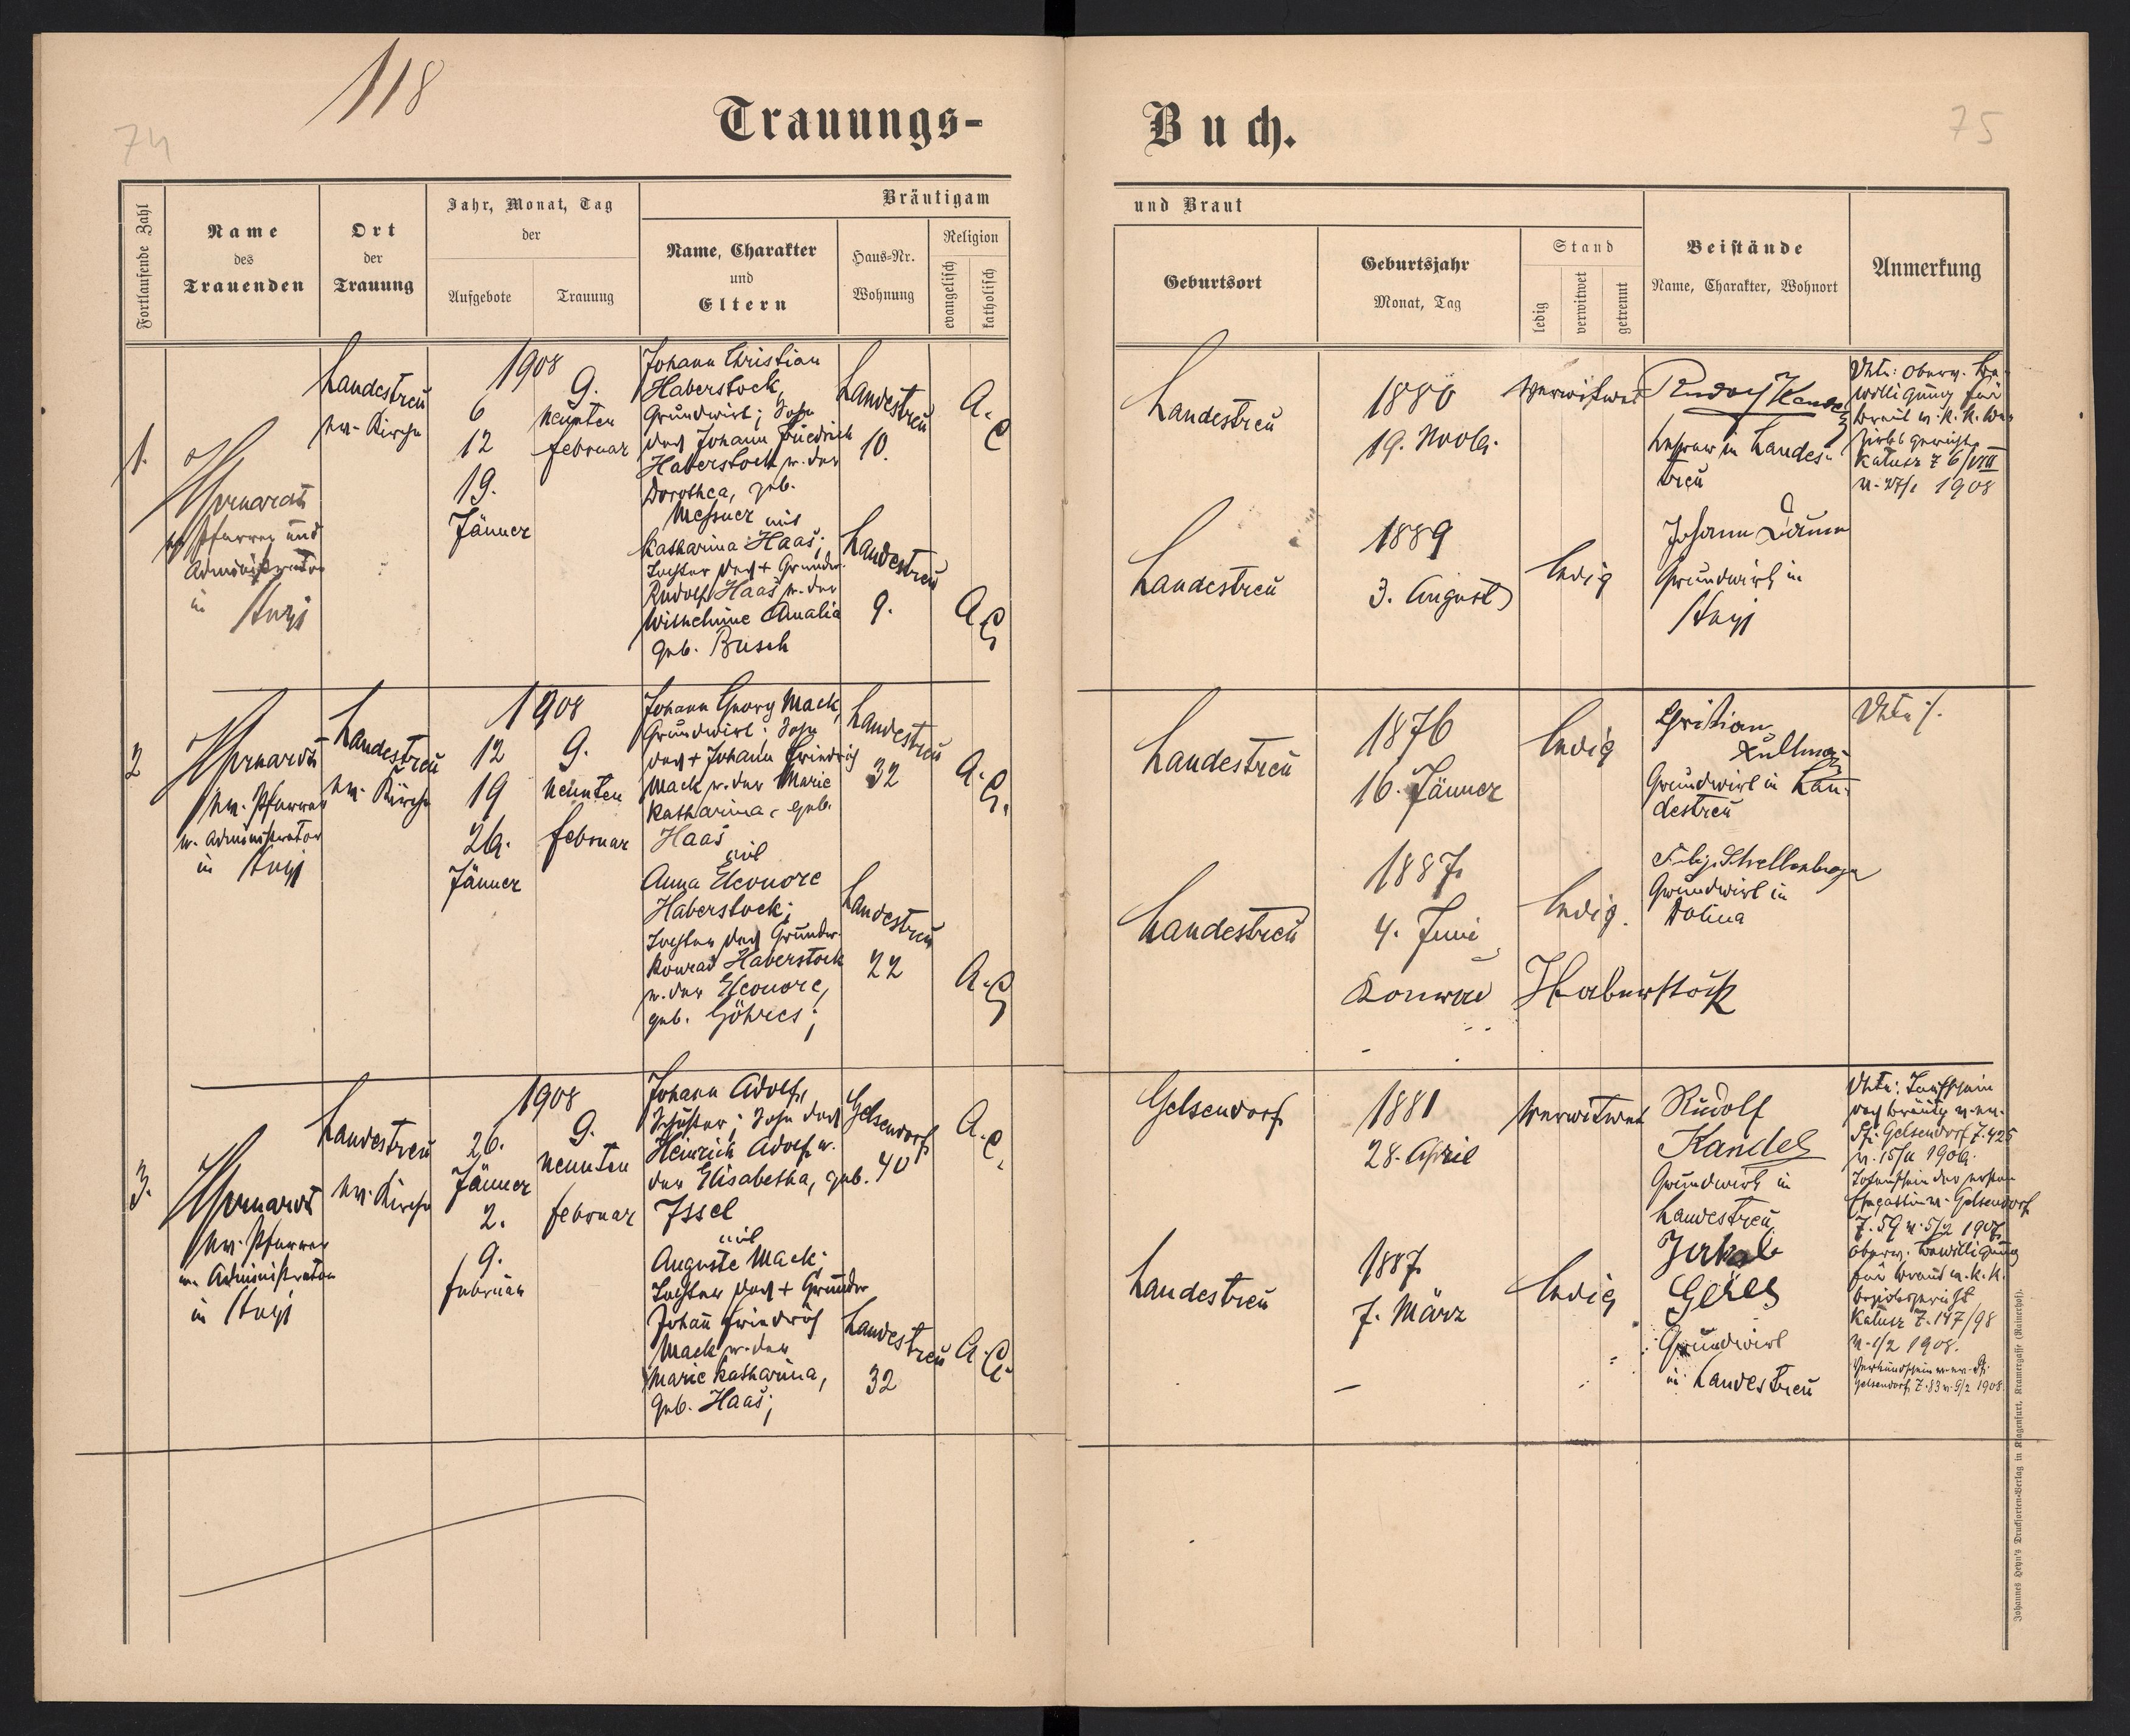 118
74
75
Trauungs-
Buch.
Fortlaufende Zahl
Name
des
Trauenden
Ort
der
Trauung
Jahr, Monat, Tag
der
Aufgebote
Trauung
Bräutigam
Name, Charakter
und
Eltern
Haus-Nr.
Wohnung
Religion
evangelisch
katholisch
und Braut
Geburtsort
Geburtsjahr
Monat, Tag
Stand
ledig
verwitwet
getrennt
Beistände
Name, Charakter, Wohnort
Anmerkung
1.
ev. Pfarrer und
Administrator
in Stryj
Landestreu
ev. Kirche
1908
6
12
19.
Jänner
9.
neunten
Februar
Johann Christian
Haberstock,
Grundwirt; Sohn
des Johann Friedrich
Haberstock u. der
Dorothea, geb.
Messner mit
Katharina Haas;
Tochter des + Grundw.
Rudolf Haas u. der
Wilhelmine Amalia
geb. Busch
Landestreu
10.
A. C
Landestreu
9.
A. C
Landestreu
1880
19. Novb.
verwitwet
Rudolf Kandel
Lehrer in Landes-
treu
Vkta: Oberv. Be-
willigung für
Braut v. k. k. Be-
zirksgericht
Kalusz Z 6/VIII
v. 27/1 1908
Landestreu
1889
3. August
ledig
Johann
Grundwirt in
Stryj
2
ev. Pfarrer
u. Administrator
in Stryj
Landestreu
ev. Kirche
1908
12
19
26.
Jänner
9.
neunten
Februar
Johann Georg Mack,
Grundwirt; Sohn
des + Johann Friedrich
Mack u. der Marie
Katharina, geb.
Haas
mit
Anna Eleonore
Haberstock;
Tochter des Grundw.
Konrad Haberstock
u. der Eleonore,
geb. Göhres;
Landestreu
32
A. C.
Landestreu
22
A. C
Landestreu
1876
16. Jänner
ledig
Christian
Kullmann
Grundwirt in Lan-
destreu
Vkta /.
Landestreu
1887
4. Juni
ledig.
Grundwirt in
Dolina
Konrad Haberstock
3.
ev. Pfarrer
u. Administrator
in Stryj
Landestreu
ev. Kirche
1908
26.
Jänner
2.
9.
Februar
9.
neunten
Februar
Johann Adolf,
Schuster; Sohn des
Heinrich Adolf u.
der Elisabetha, geb.
Issel
mit
Auguste Mack;
Tochter des + Grundw
Johann Friedrich
Mack u. der
Marie Katharina,
geb. Haas;
Gelsendorf
40
A. C.
Landestreu
32
A. C.
Gelsendorf
1881
28. April
verwitwet
Rudolf
Kandel
Grundwirt in
Landestreu
Landestreu
1887
7. März
ledig
Jakob
Göres
Grundwirt
in Landestreu
Vkta: Taufschein
des Bräutg. v. ev.
Pf. Gelsendorf Z. 425
v. 15/11 1906.
Totenschein der ersten
Ehegattin v. Gelsendorf
Z. 59 v. 5/2 1907
Oberv. Bewilligung
für Braut v. k. k.
Bezirksgericht
Kalusz Z. 147/98
v. 1/2 1908.
Verkündschein v. ev. Pf.
Gelsendorf, Z. 83 v. 9/2 1908
Johannes Heyn's Drucksorten-Verlag in Klagenfurt, Kramergasse (Rainerhof).